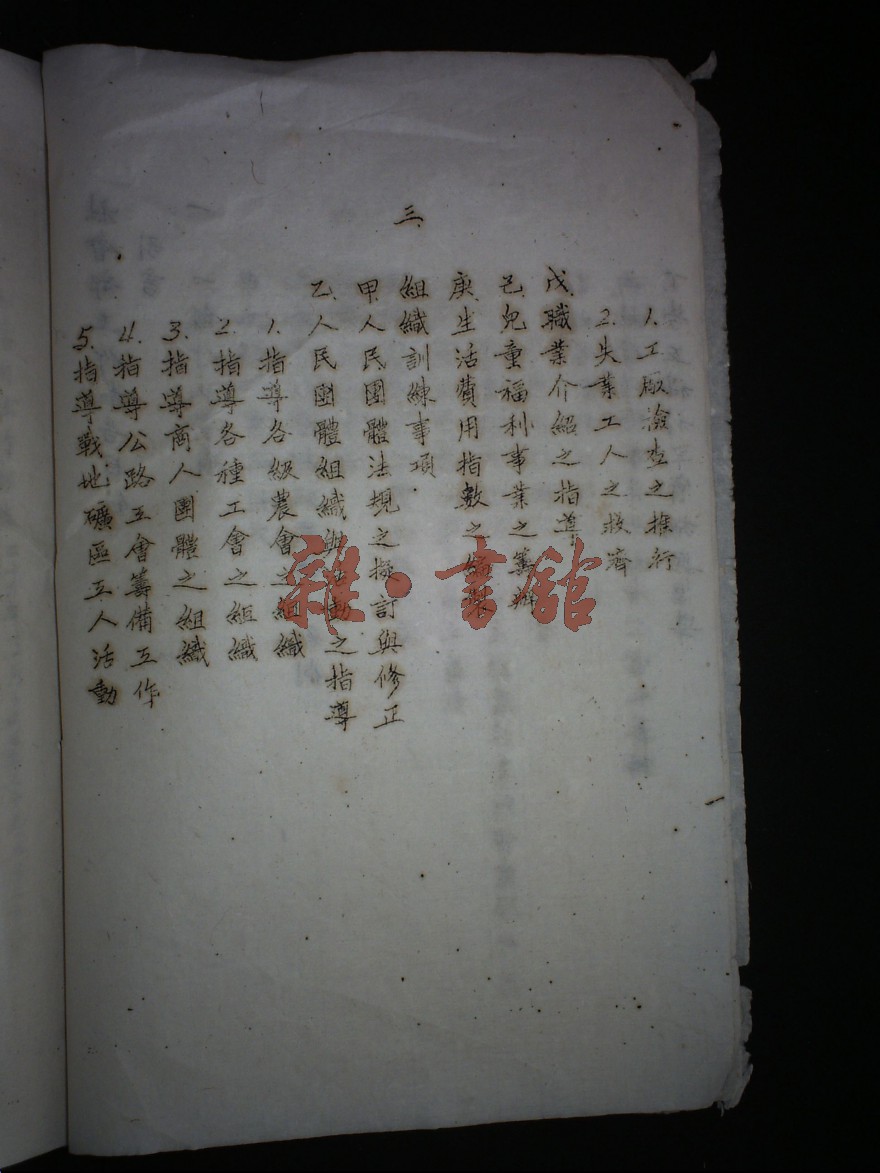 1.工廠檢查之推行
2.失業工人之救濟
戊.職業介紹之指導
己.兒童福利事業之籌辦
庚.生活費用指數之編製
三.組織訓練事項
甲.人民團體法規之擬訂與修正
乙.人民團體組織與活動之指導
1.指導各級農會之組織
2.指導各種工會之組織
3.指導商人團體之組織
4.指導公路工會籌備工作
5.指導戰地礦區工人活動
雜·書館